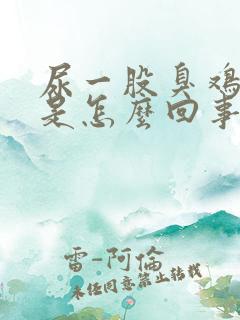 尿一股臭鸡
是怎麼回事
雷-阿倫
未经同意禁止转载